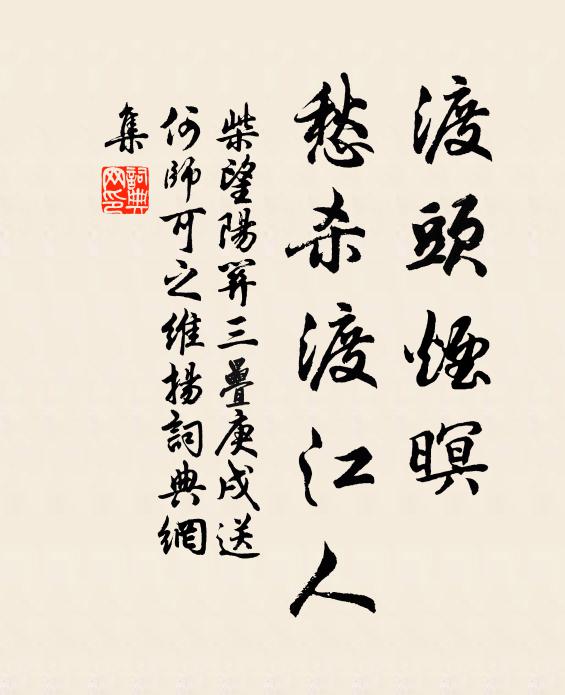 渡頭煙暝
愁杀渡江人
柴望陽関三疊庚戌送
何師可之維揚詞典網
集
詞典
网印